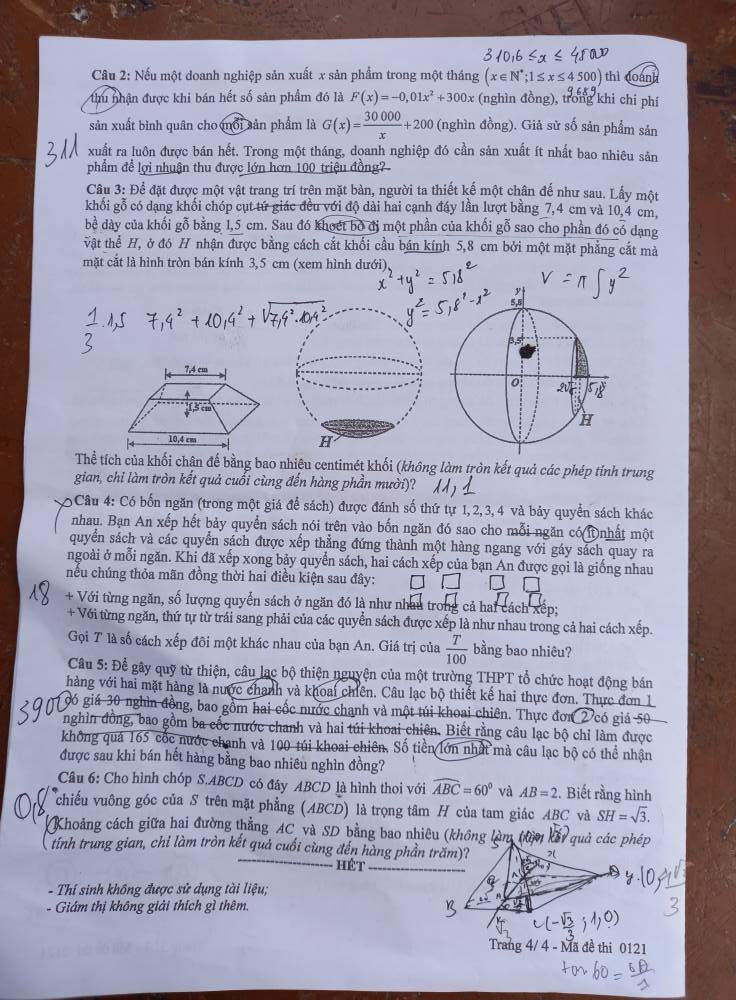 310,6 ≤ x ≤ 4500
Câu 2: Nếu một doanh nghiệp sản xuất x sản phẩm trong một tháng (x ∈ N*; 1 ≤ x ≤ 4 500) thì doanh
9689
thu nhận được khi bán hết số sản phẩm đó là F(x) = −0,01x² + 300x (nghìn đồng), trong khi chi phí
sản xuất bình quân cho mỗi sản phẩm là G(x) = 30 000/x + 200 (nghìn đồng). Giả sử số sản phẩm sản
311
xuất ra luôn được bán hết. Trong một tháng, doanh nghiệp đó cần sản xuất ít nhất bao nhiêu sản
phẩm để lợi nhuận thu được lớn hơn 100 triệu đồng?
Câu 3: Để đặt được một vật trang trí trên mặt bàn, người ta thiết kế một chân đế như sau. Lấy một
khối gỗ có dạng khối chóp cụt tứ giác đều với độ dài hai cạnh đáy lần lượt bằng 7,4 cm và 10,4 cm,
bề dày của khối gỗ bằng 1,5 cm. Sau đó khoét bỏ đi một phần của khối gỗ sao cho phần đó có dạng
vật thể H, ở đó H nhận được bằng cách cắt khối cầu bán kính 5,8 cm bởi một mặt phẳng cắt mà
mặt cắt là hình tròn bán kính 3,5 cm (xem hình dưới).
x² + y² = 5,8²
V = π∫y²
1/3 . 1,5 7,4² + 10,4² + √7,4².10,4²
y² = 5,8² - x²
y
5,8
3,5
7,4 cm
1,5 cm
10,4 cm
O
5,8
H
H
Thể tích của khối chân đế bằng bao nhiêu centimét khối (không làm tròn kết quả các phép tính trung
gian, chỉ làm tròn kết quả cuối cùng đến hàng phần mười)?
11,1
Câu 4: Có bốn ngăn (trong một giá để sách) được đánh số thứ tự 1, 2, 3, 4 và bảy quyển sách khác
nhau. Bạn An xếp hết bảy quyển sách nói trên vào bốn ngăn đó sao cho mỗi ngăn có ít nhất một
quyển sách và các quyển sách được xếp thẳng đứng thành một hàng ngang với gáy sách quay ra
ngoài ở mỗi ngăn. Khi đã xếp xong bảy quyển sách, hai cách xếp của bạn An được gọi là giống nhau
nếu chúng thỏa mãn đồng thời hai điều kiện sau đây:
18
+ Với từng ngăn, số lượng quyển sách ở ngăn đó là như nhau trong cả hai cách xếp;
+ Với từng ngăn, thứ tự từ trái sang phải của các quyển sách được xếp là như nhau trong cả hai cách xếp.
Gọi T là số cách xếp đôi một khác nhau của bạn An. Giá trị của T/100 bằng bao nhiêu?
Câu 5: Để gây quỹ từ thiện, câu lạc bộ thiện nguyện của một trường THPT tổ chức hoạt động bán
hàng với hai mặt hàng là nước chanh và khoai chiên. Câu lạc bộ thiết kế hai thực đơn. Thực đơn 1
3900
có giá 30 nghìn đồng, bao gồm hai cốc nước chanh và một túi khoai chiên. Thực đơn 2 có giá 50
nghìn đồng, bao gồm ba cốc nước chanh và hai túi khoai chiên. Biết rằng câu lạc bộ chỉ làm được
không quá 165 cốc nước chanh và 100 túi khoai chiên. Số tiền lớn nhất mà câu lạc bộ có thể nhận
được sau khi bán hết hàng bằng bao nhiêu nghìn đồng?
Câu 6: Cho hình chóp S.ABCD có đáy ABCD là hình thoi với ABC = 60⁰ và AB = 2. Biết rằng hình
0,8
chiếu vuông góc của S trên mặt phẳng (ABCD) là trọng tâm H của tam giác ABC và SH = √3.
Khoảng cách giữa hai đường thẳng AC và SD bằng bao nhiêu (không làm tròn kết quả các phép
tính trung gian, chỉ làm tròn kết quả cuối cùng đến hàng phần trăm)?
HẾT
- Thí sinh không được sử dụng tài liệu;
- Giám thị không giải thích gì thêm.
B
C(-√3/3; 1; 0)
Trang 4/ 4 - Mã đề thi 0121
tan 60 =